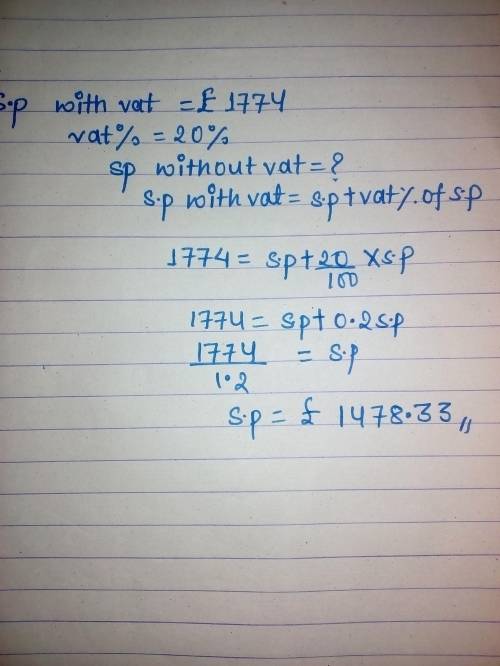 s.p with vat = £ 1774
vat% = 20%
sp without vat = ?
s.p with vat = s.p + vat%. of s.p
1774 = sp + 20/100 × s.p
1774 = sp + 0.2 s.p
1774/1.2 = s.p
s.p = £ 1478.33 //